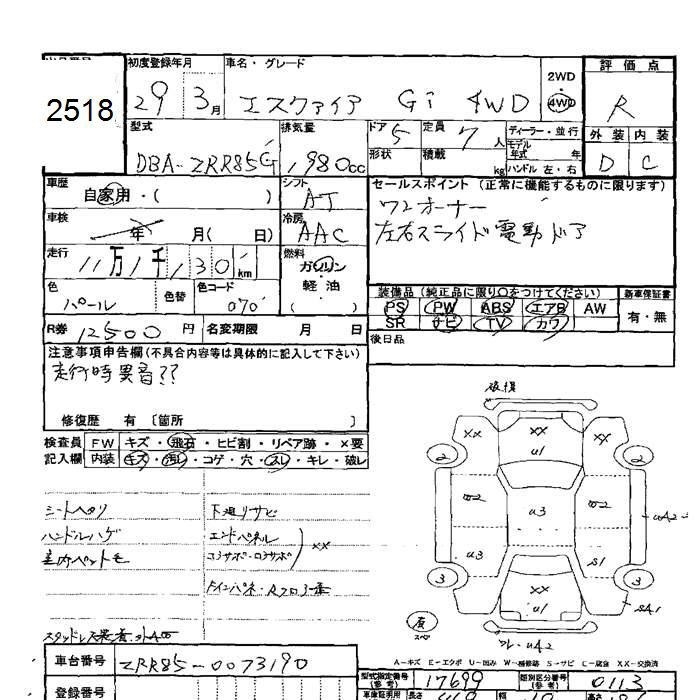 2518
初度登録年月 29 3月
車名・グレード エスクァイア Gi 4WD
2WD・4WD
評価点 R
外装 内装
D C
型式 DBA-ZRR85G
排気量 1,980cc
ドア 5
形状
定員 7人
積載 kg
ディーラー・並行
モデル年式 年
ハンドル 左・右
車歴 自家用・( )
シフト AT
セールスポイント (正常に機能するものに限ります)
ワンオーナー
左右スライド電動ドア
車検 年 月( 日)
冷房 AAC
走行 11万1千130km
燃料 ガソリン
軽油
( )
色 パール
色替
色コード 070
装備品(純正品に限り○をつけてください)
PS PW ABS エアB AW
SR ナビ TV カワ
新車保証書
有・無
R券 12500円
名変期限 月 日
後日品
注意事項申告欄(不具合内容等は具体的に記入して下さい)
走行時異音??
修復歴 有 〔箇所 〕
検査員 FW キズ・飛石・ヒビ割・リペア跡・×要
記入欄 内装 キズ・汚れ・コゲ・穴・スレ・キレ・破レ
シートヘタリ
ハンドルハゲ
室内ペットモ
下廻リサビ
エンドパネル
XX
破損
XX XX XX
U1
2 2
W2 U3 W2
UA2
U3 S1
3 3
XX
U1
SA1
UA2
A-キズ E-エクボ U-凹み W-補修跡 S-サビ C-腐食 XX-交換済
車台番号 ZRR85-0073190
型式指定番号(参考) 17699
類別区分番号(参考) 0113
登録番号
長さ
幅